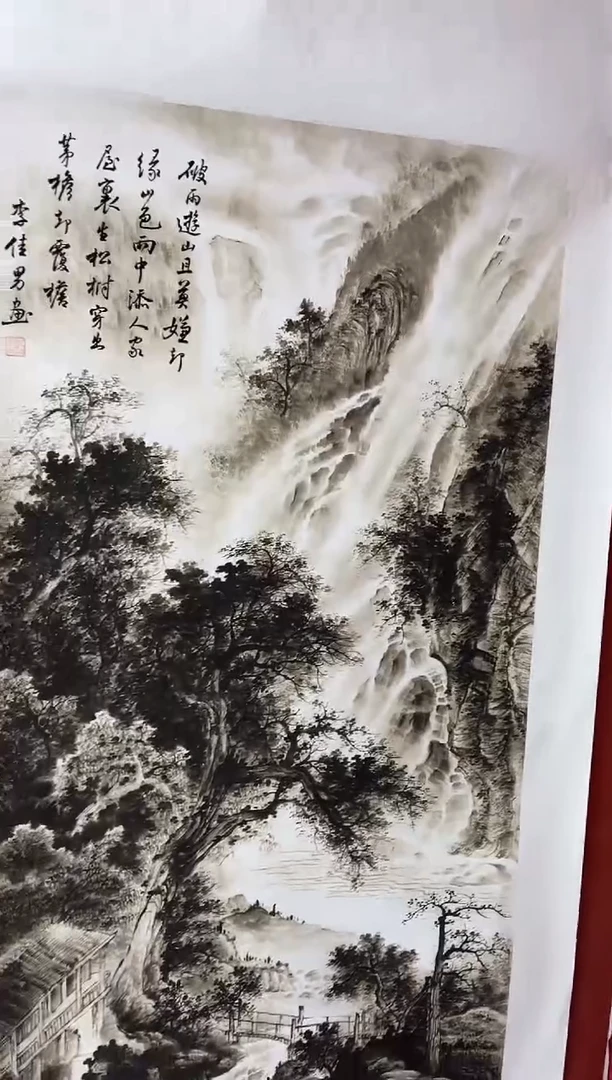 破雨遊山且莫嫌却
緣山色雨中添人家
屋裏生松樹穿出
茅檐却覆檐
李佳男画